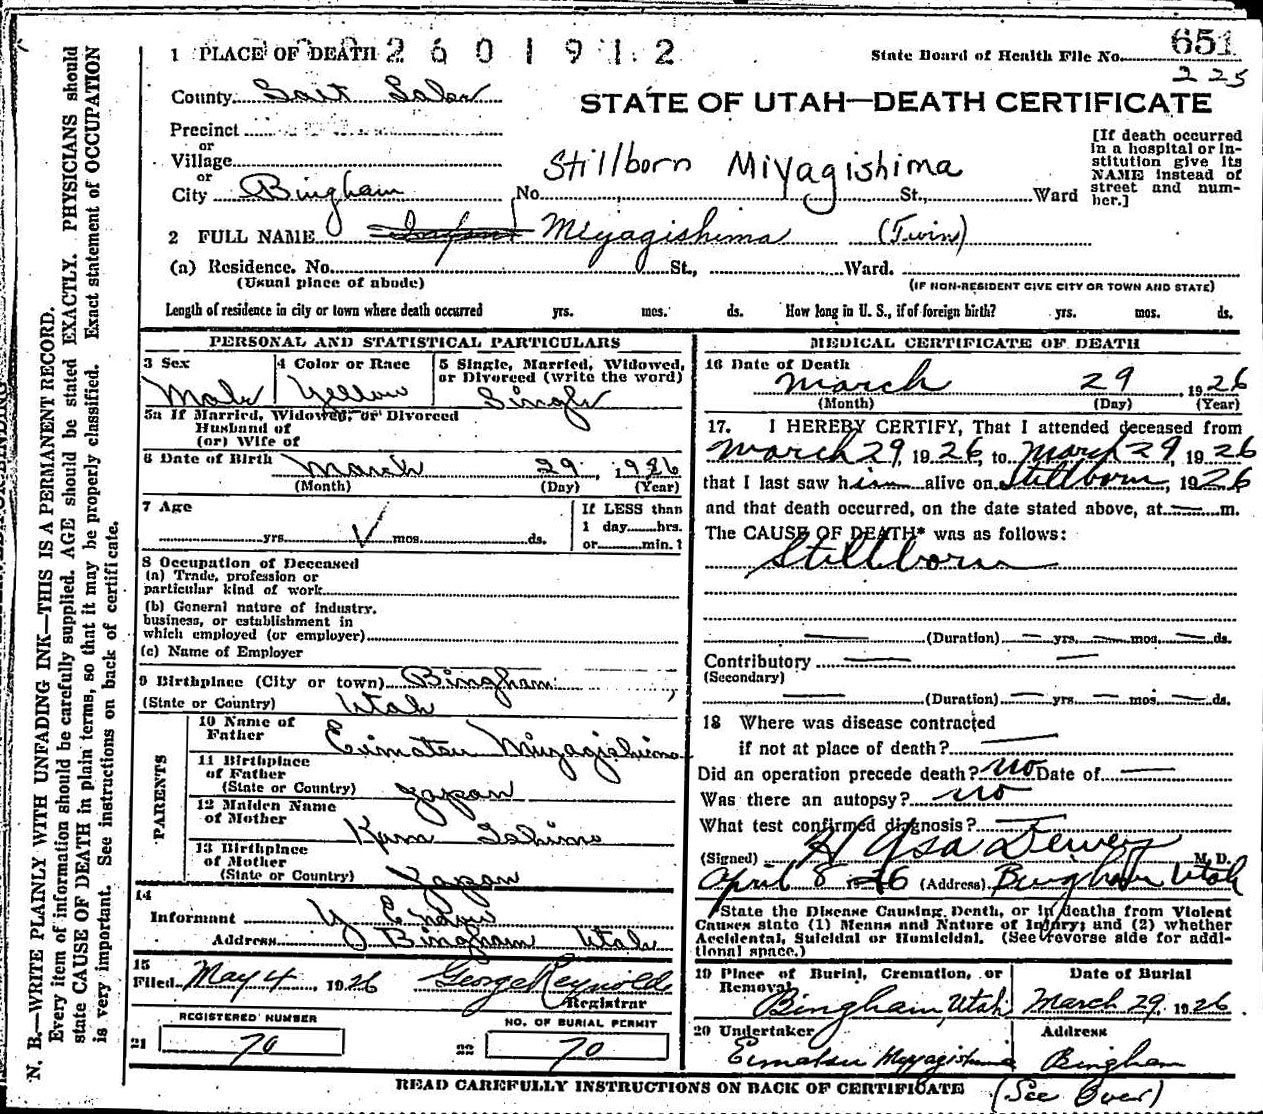 1 PLACE OF DEATH 2601912
State Board of Health File No. 651
225
County Salt Lake
STATE OF UTAH—DEATH CERTIFICATE
Precinct
or
Village
or
City Bingham No. St., Ward
Stillborn Miyagishima
[If death occurred
in a hospital or in-
stitution give its
NAME instead of
street and num-
ber.]
2 FULL NAME Infant Miyagishima (Twin)
(a) Residence. No. St., Ward.
(Usual place of abode) (IF NON-RESIDENT GIVE CITY OR TOWN AND STATE)
Length of residence in city or town where death occurred yrs. mos. ds. How long in U. S., if of foreign birth? yrs. mos. ds.
PERSONAL AND STATISTICAL PARTICULARS
3 Sex Male
4 Color or Race Yellow
5 Single, Married, Widowed,
or Divorced (write the word)
Single
5a If Married, Widowed, or Divorced
Husband of
(or) Wife of
6 Date of Birth March 29, 1926
(Month) (Day) (Year)
7 Age
yrs. mos. ds.
If LESS than
1 day hrs.
or min. ?
8 Occupation of Deceased
(a) Trade, profession or
particular kind of work
(b) General nature of industry,
business, or establishment in
which employed (or employer)
(c) Name of Employer
9 Birthplace (City or town) Bingham
(State or Country) Utah
PARENTS
10 Name of
Father Eimatsu Miyagishima
11 Birthplace
of Father
(State or Country) Japan
12 Maiden Name
of Mother
13 Birthplace
of Mother
(State or Country) Japan
14
Informant Y
Address Bingham Utah
15
Filed May 4, 1926 George Reynolds
Registrar
REGISTERED NUMBER
21 70
NO. OF BURIAL PERMIT
22 70
MEDICAL CERTIFICATE OF DEATH
16 Date of Death
March 29 1926
(Month) (Day) (Year)
17. I HEREBY CERTIFY, That I attended deceased from
March 29, 1926, to March 29, 1926
that I last saw him alive on Stillborn, 1926
and that death occurred, on the date stated above, at — m.
The CAUSE OF DEATH* was as follows:
Stillborn
(Duration) — yrs. — mos. — ds.
Contributory
(Secondary)
(Duration) — yrs. — mos. — ds.
18 Where was disease contracted
if not at place of death?
Did an operation precede death? no Date of —
Was there an autopsy? no
What test confirmed diagnosis?
(Signed) H Asa Dewey M. D.
April 8 1926 (Address) Bingham Utah
*State the Disease Causing Death, or in deaths from Violent
Causes state (1) Means and Nature of Injury; and (2) whether
Accidental, Suicidal or Homicidal. (See reverse side for addi-
tional space.)
19 Place of Burial, Cremation, or
Removal
Bingham, Utah
Date of Burial
March 29, 1926
20 Undertaker
Eimatsu Miyagishima
Address
Bingham
READ CAREFULLY INSTRUCTIONS ON BACK OF CERTIFICATE (See Over)
N. B.—WRITE PLAINLY WITH UNFADING INK—THIS IS A PERMANENT RECORD.
Every item of information should be carefully supplied. AGE should be stated EXACTLY. PHYSICIANS should
state CAUSE OF DEATH in plain terms, so that it may be properly classified. Exact statement of OCCUPATION
is very important. See instructions on back of certificate.